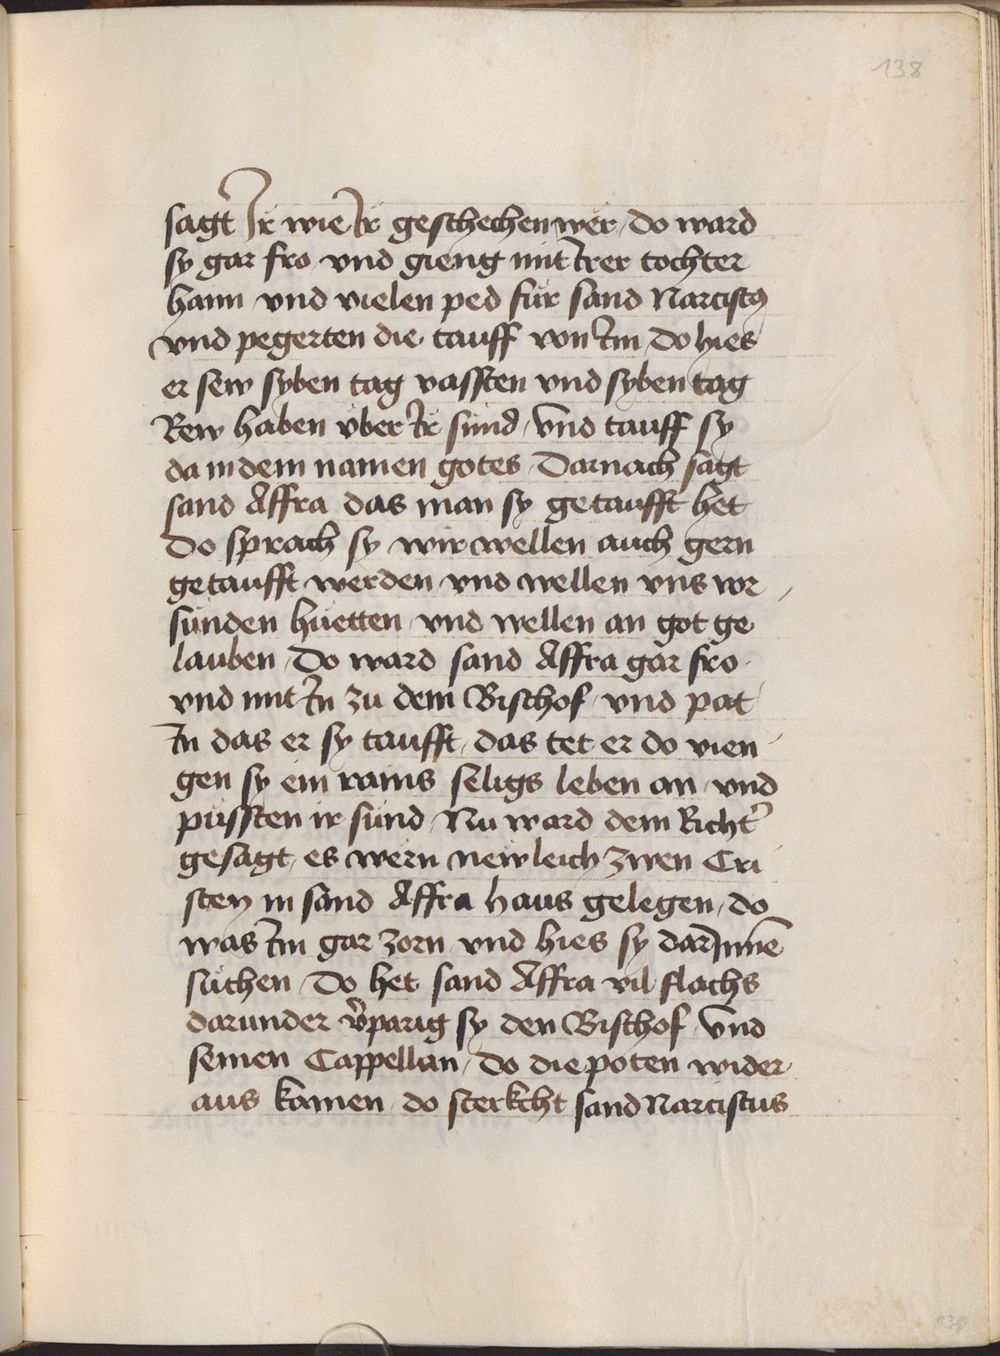 138
sagt̕ Ir wie Ir geschechen wër / do ward
sy gar fro vnd gieng mit Irer tochter
haim vnd vielen ped für sand Narcistꝰ
vnd pegerten die tauff von Im / Do hies
er sew syben tag vassten vnd syben tag
Rew haben über Ir sünd / vnd tauff sy
da in dem namen gotes / Darnach sagt
sand Affra das man sy getaufft het
Do sprach sy wir wellen auch gern
getaufft werden vnd wellen vns vor
sünden hüetten vnd wellen an got ge
lauben / Do ward sand Affra gar fro
vnd mit In zu dem Bischof vnd pat
In das er sy taufft / das tet er do vien
gen sy ein rains seligs leben an / vnd
püssten ir sünd / Nu ward dem Richt̕
gesagt / es wern newleich zwen Cri
sten in sand Affra haus gelegen / do
was Im gar zorn vnd hies sy darInnē
süchen / Do het sand Affra vil flachs
darunder v̕parig sy den Bischof vnd
seinen Cappellan / do die poten wider
aus komen do sterkcht sand Narcistus